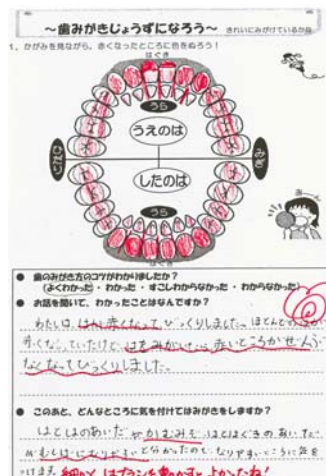 ～歯みがきじょうずになろう～ きれいにみがけているかな
1、かがみを見ながら、赤くなったところに色をぬろう！
はぐき
うら
うえのは
ひだり
みぎ
したのは
うら
はぐき
あーん
● 歯のみがき方のコツがわかりましたか？
（よくわかった・わかった・すこしわからなかった・わからなかった）
● お話を聞いて、わかったことはなんですか？
わたしは、はが赤くなってびっくりしました。ほとんどのはが
赤くなっていたけど、はをみがいたら赤いところがぜんぶ
なくなってびっくりしました。
● このあと、どんなところに気を付けてはみがきをしますか？
はとはのあいだやかむみぞ、はとはぐきのあいだ
がむしばになりやすいとなかったので、なりやすいところに気を
つけます。細かくはブラシを動かすとよかったね！